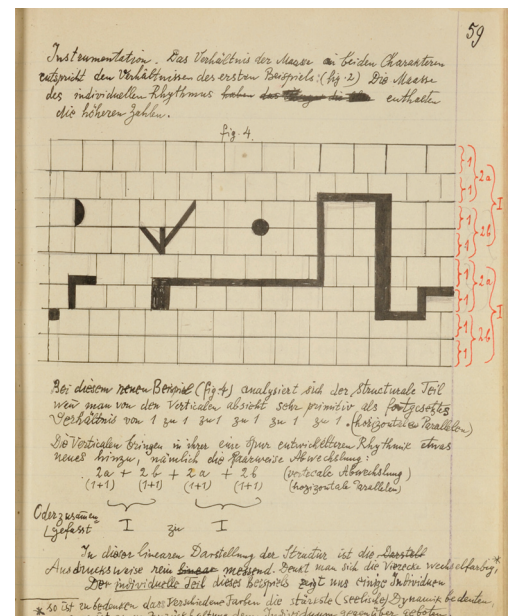 59
Instrumentation. Das Verhältnis der Maasse an beiden Charakteren
entspricht den Verhältnissen des ersten Beispiels: (fig. 2) Die Maasse
des individuellen Rhythmus haben das enthalten
die höheren Zahlen.
fig. 4.
1
1
2a
1
1
2b
I
1
1
2a
1
1
2b
I
Bei diesem neuen Beispiel (fig 4) analysiert sich der Structurale Teil
wenn man von den Verticalen absieht sehr primitiv als fortgesetztes
Verhältnis von 1 zu 1 zu 1 zu 1 zu 1. (horizontale Parallelen)
Die Verticalen bringen in ihrer eine Spur entwickelteren Rhythmik etwas
neues hinzu, nämlich die paarweise Abwechslung:
2a + 2b + 2a + 2b (verticale Abwechslung)
(1+1) (1+1) (1+1) (1+1) (horizontale Parallelen)
Oder zusammen
gefasst I zu I
In dieser linearen Darstellung der Structur ist die Darstell
Ausdrucksweise rein linear messend. Denkt man sich die Vierecke wechselfarbig,*
Der individuelle Teil dieses Beispiels zeigt uns einige Individuen
* so ist zu bedenken dass verschiedene Farben die stärkste (seelische) Dynamik bedeuten,
dem Individuum gegenüber geboten